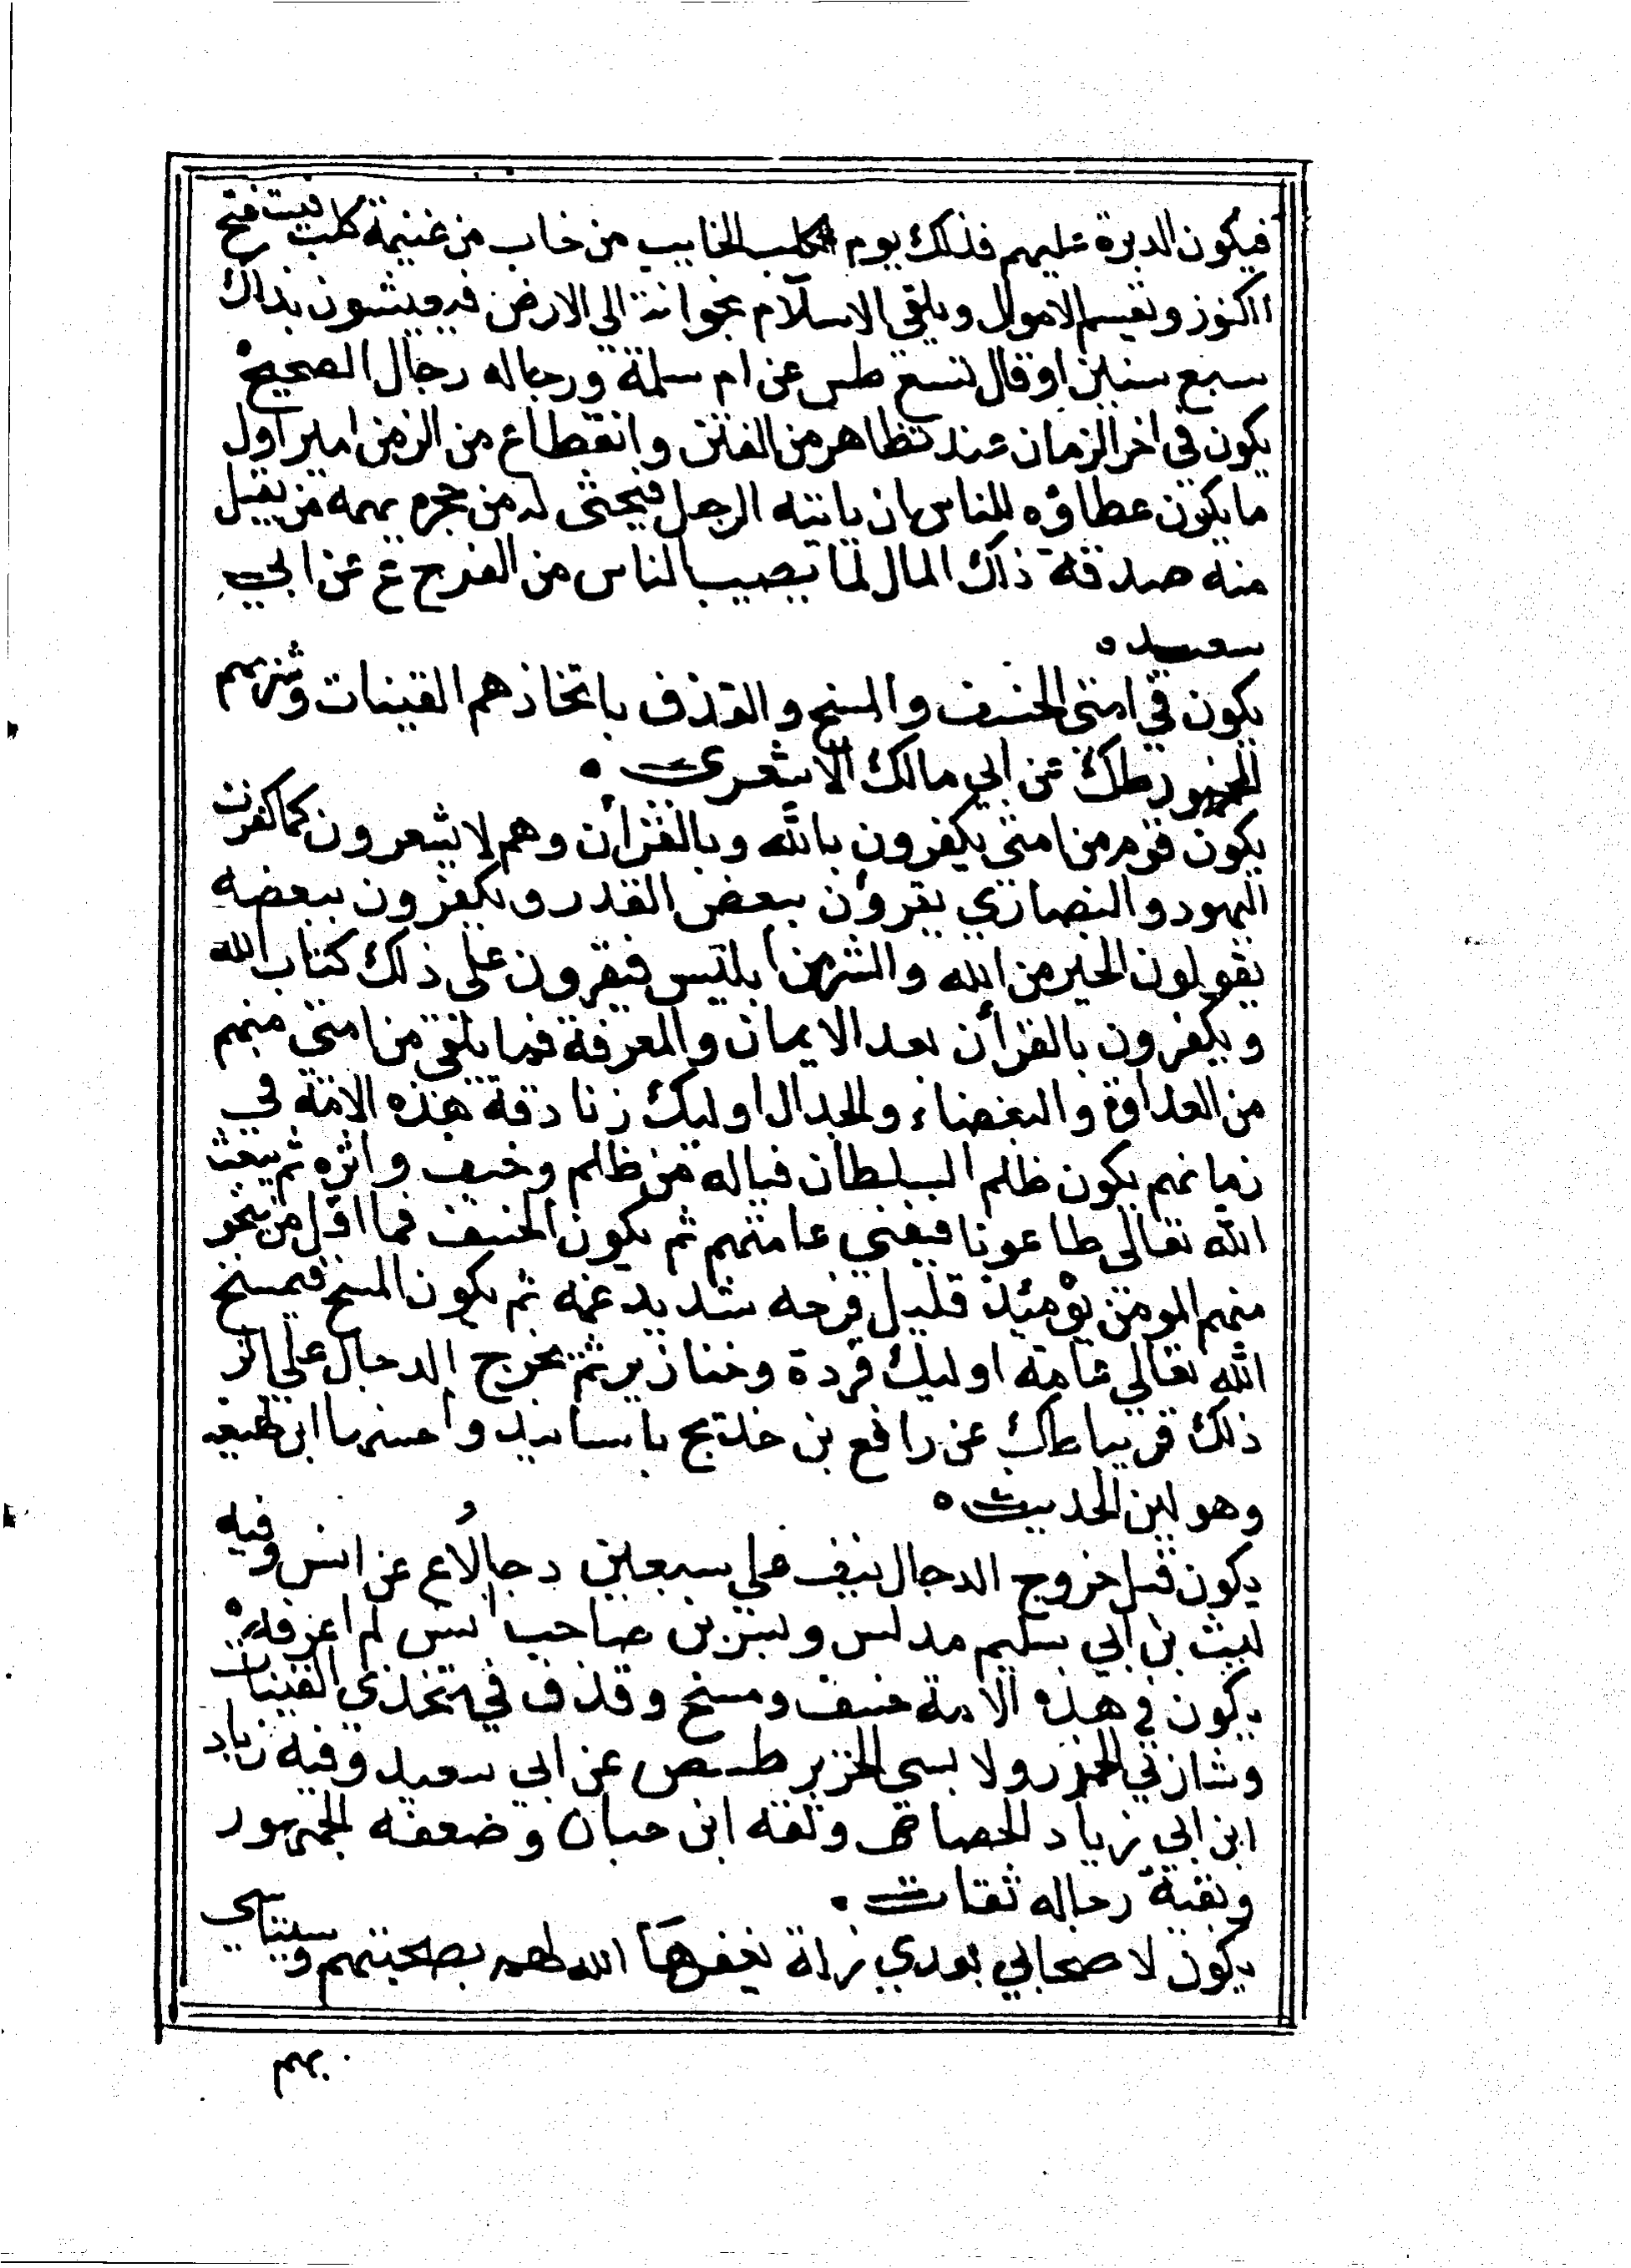 فيكون الدبرة عليهم فذلك يوم كلب الخايب من خاب من غنيمة كلب فيستفتح
الكنوز ويقسم الاموال ويلقي الاسلام بجرانه الي الارض فيعيشون بذاك
سبع سنين او قال تسع طس عن ام سلمة ورجاله رجال الصحيح ه
يكون في اخر الزمان عند تظاهر من الفتن وانقطاع من الزمن امير اول
ما يكون عطاؤه للناس ان ياتيه الرجل فيحثى له من حجره يهمه من يقبل
منه صدقة ذاك المال لما يصيب الناس من الفرج ع عن ابي
سعيد ه
يكون في امتى الخسف والمسخ والقذف باتخاذهم القينات وشربهم
الخمور طك عن ابي مالك الاشعري ه
يكون قوم من امتى يكفرون بالله وبالقرأن وهم لا يشعرون كما كفرت
اليهود والنصاري يقرون ببعض القدر ويكفرون ببعضه
يقولون الخير من الله والشر من ابليس فيقرون على ذلك كتاب الله
ويكفرون بالقرأن بعد الايمان والمعرفة فما يلقي من امتي منهم
من العداوة والبغضاء والجدال اوليك زنادقة هذه الامة في
زمانهم يكون ظلم السلطان فياله من ظلم وحيف واثره ثم يبعث
الله تعالى طاعونا فيفني عامتهم ثم يكون الخسف فما اقل من ينجو
منهم المومن يومئذ قليل فرحه شديد غمه ثم يكون المسخ فيمسخ
الله تعالي عامة اوليك قردة وخنازير ثم يخرج الدجال علي اثر
ذلك قريبا طك عن رافع بن خديج باسانيد واحسنها ابن لهيعه
وهو لين الحديث ه
يكون قبل خروج الدجال نيف على سبعين دجالا ع عن انس وفيه
ليث بن ابي سليم مدلس وبشر بن صاحب انس لم اعرفه ه
يكون في هذه الامة خسف ومسخ وقذف في متخذي القينات
وشاربي الخمر ولابسي الحرير طس ص عن ابي سعيد وفيه زياد
ابن ابي زياد الجصاص وثقه ابن حبان وضعفه الجمهور
وبقية رجاله ثقات ه
يكون لاصحابي بعدي زلة يغفرها الله لهم بصحبتهم وسيتاسي
بهم